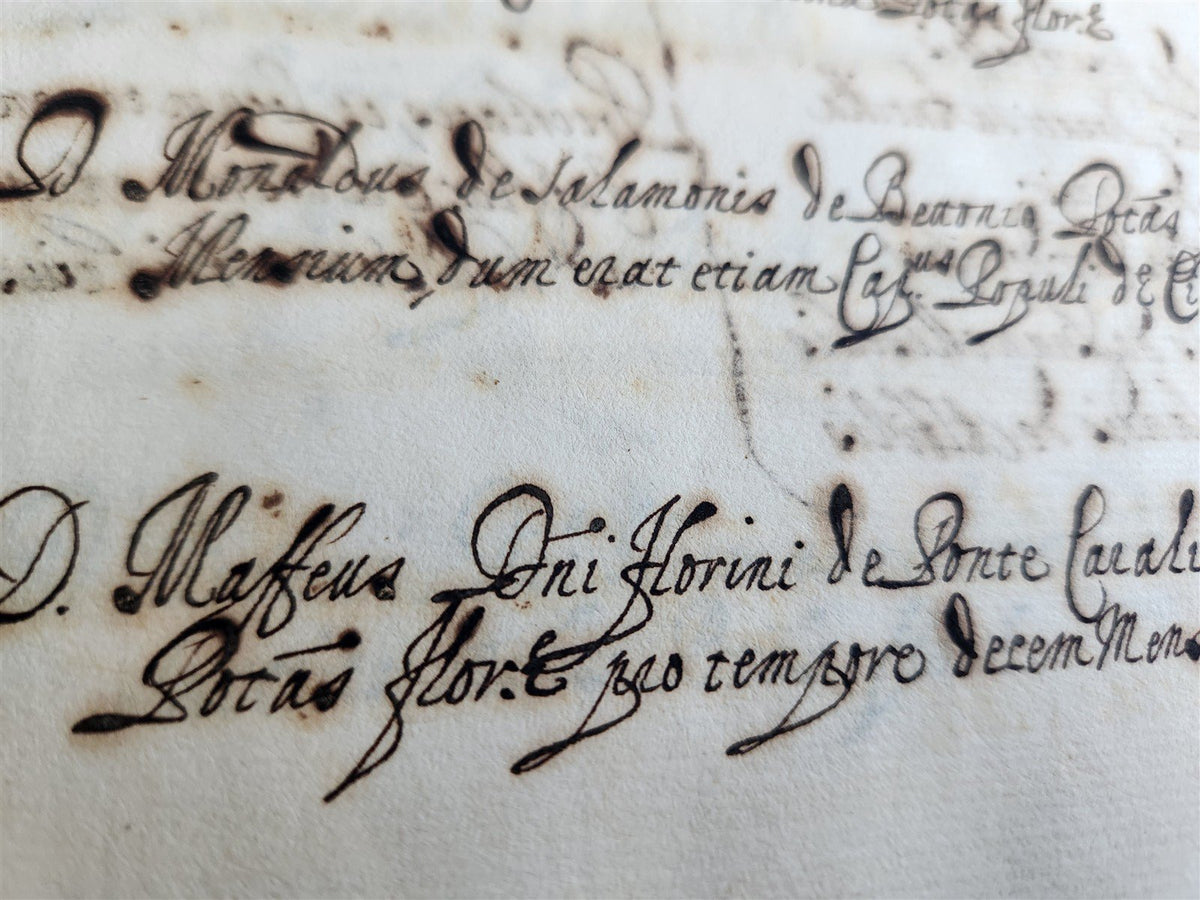 Potãs flor.e
D Monaldous de Salamonis de Bettonio Potãs
Mensium dum erat etiam Cap.us Populi de
D. Maffeus Dñi florini de Ponte Carali
Potãs flor.e pro tempore decem Mens